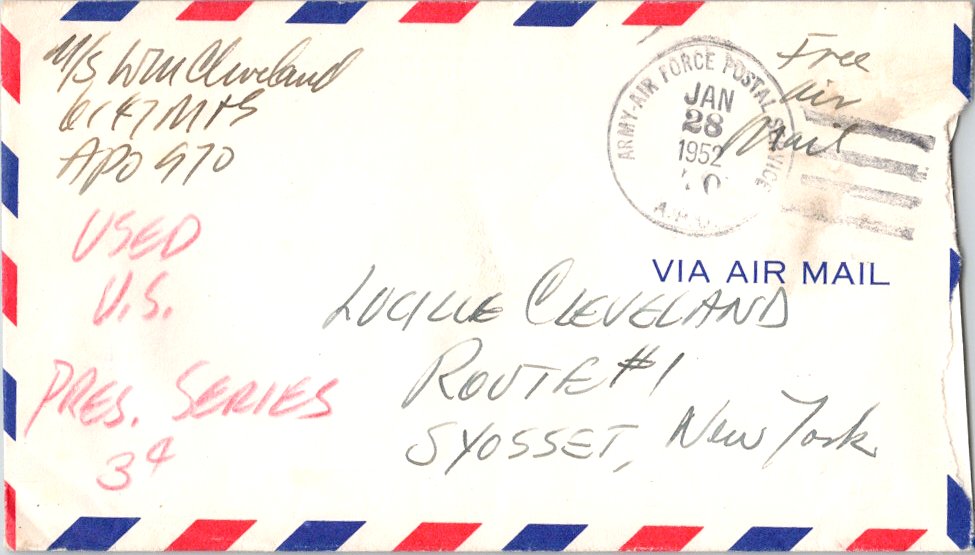 M/S Wm Cleveland
6147 MPS
APO 970
Free
Air
Mail
ARMY-AIR FORCE POSTAL SERVICE
JAN
28
1952
A.P.O.
VIA AIR MAIL
USED
U.S.
PRES. SERIES
3¢
LUCILLE CLEVELAND
ROUTE #1
SYOSSET, New York